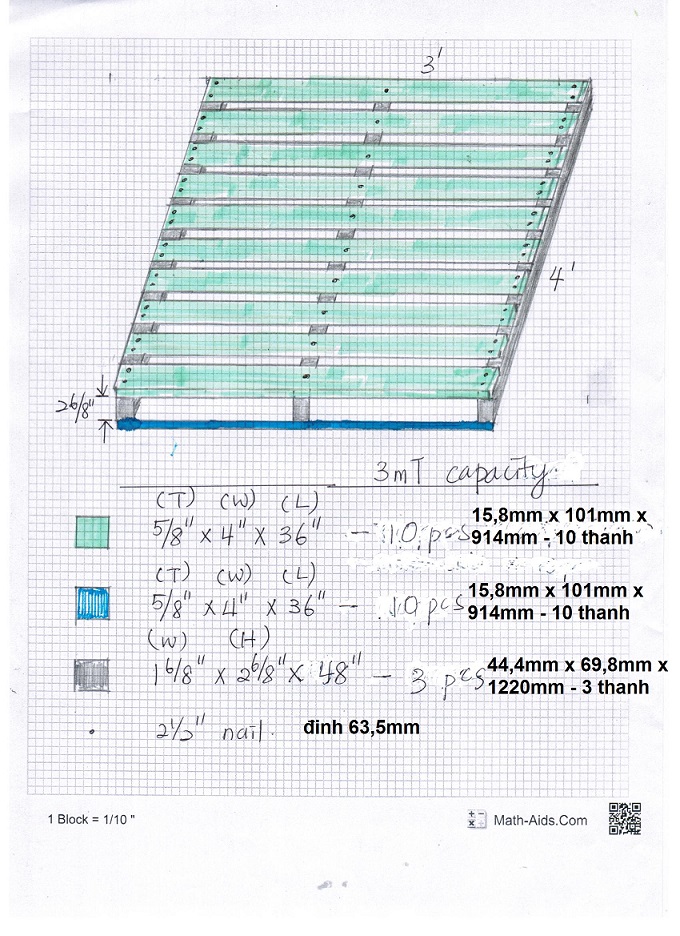 3'
4'
2 6/8"
3mT capacity.
(T) (W) (L)
5/8" x 4" x 36" - 10 pcs
15,8mm x 101mm x
914mm - 10 thanh
(T) (W) (L)
5/8" x 4" x 36" - 10 pcs
15,8mm x 101mm x
914mm - 10 thanh
(W) (H)
1 6/8" x 2 6/8" x 48" - 3 pcs
44,4mm x 69,8mm x
1220mm - 3 thanh
2 1/2" nail.
đinh 63,5mm
1 Block = 1/10 "
Math-Aids.Com